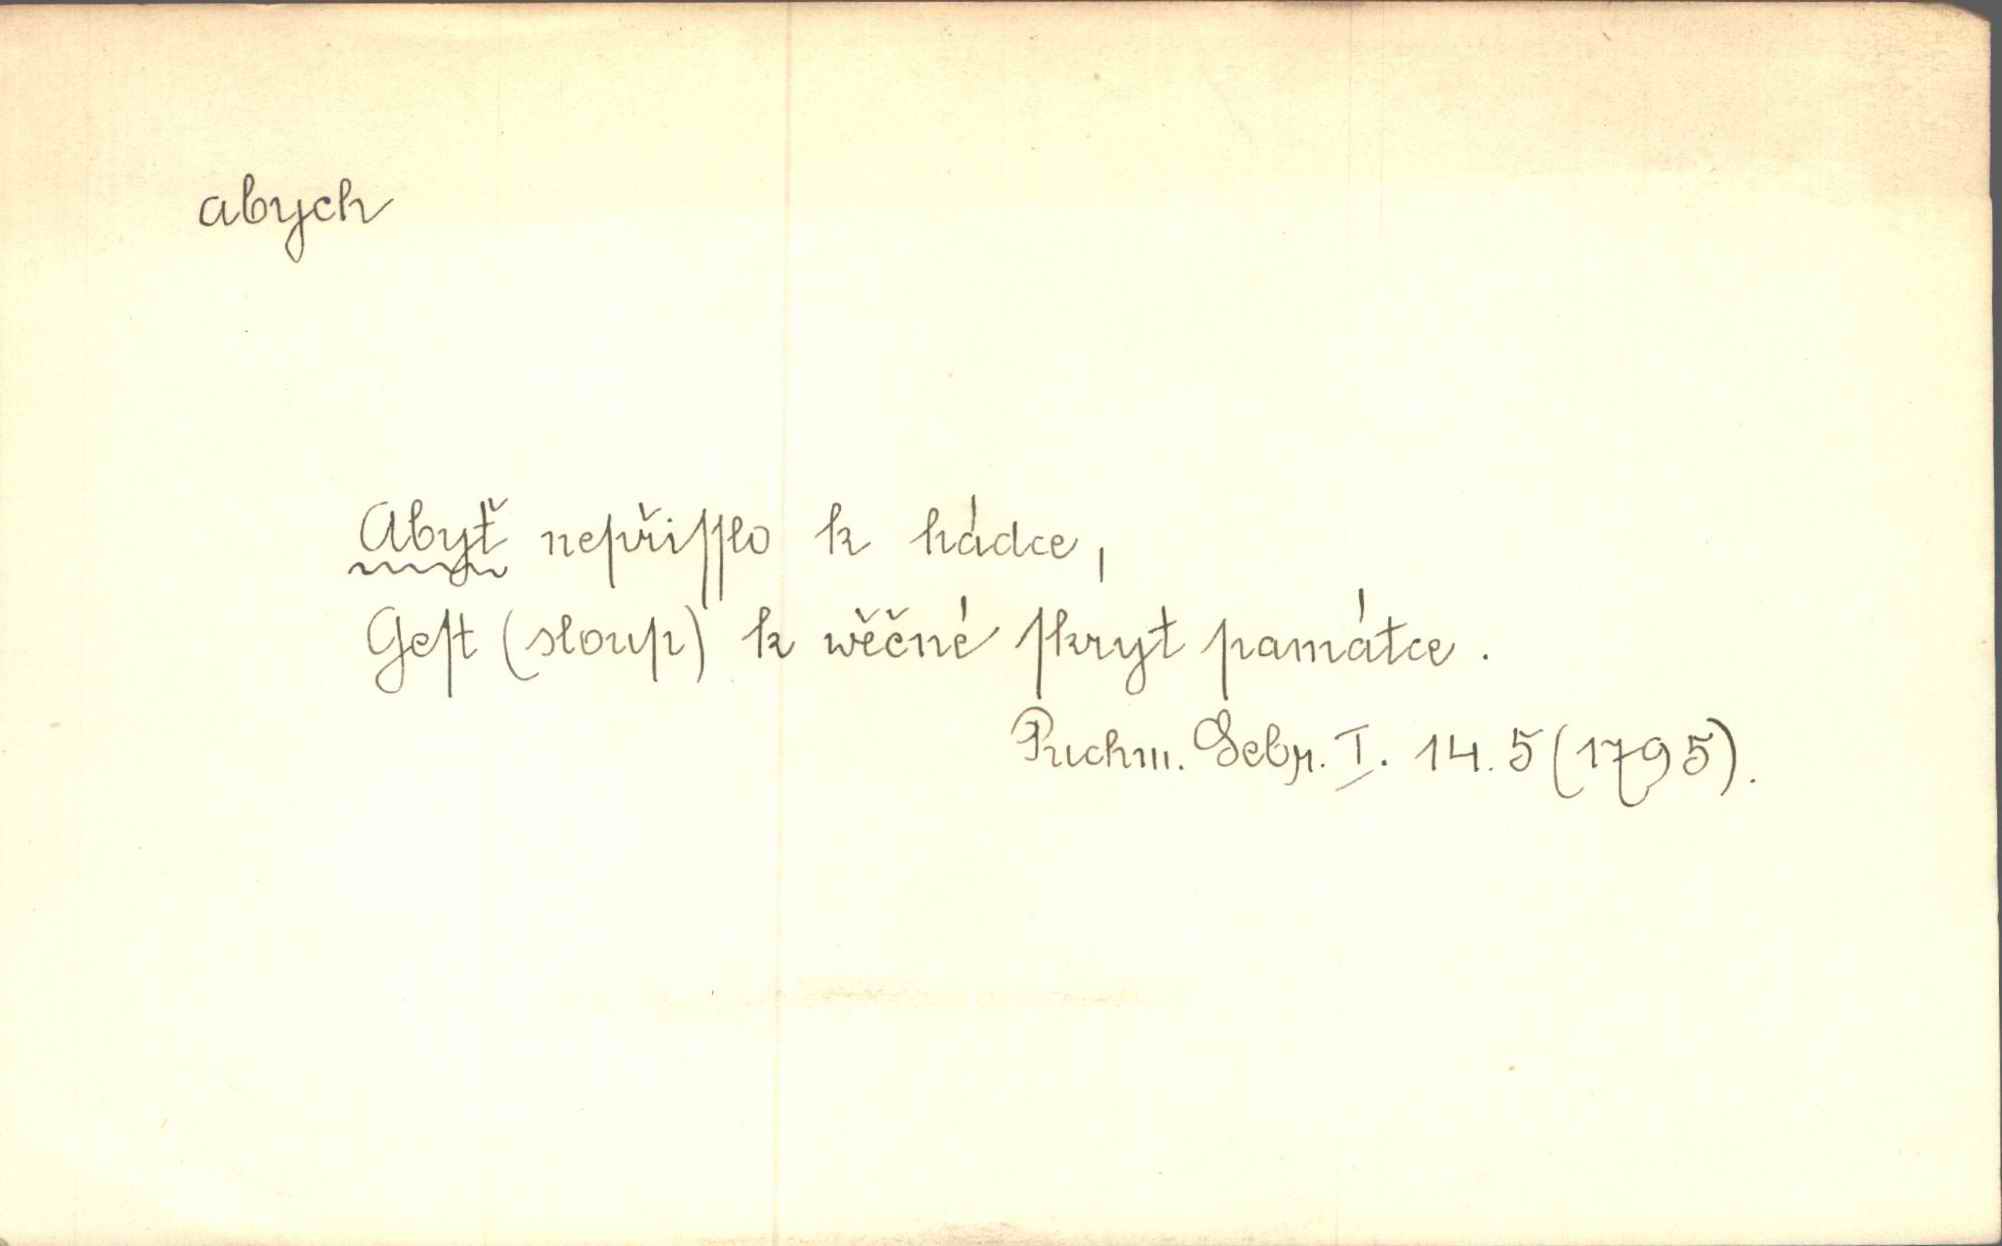 abych
Abyť nepřiſſlo k hádce,
Geſt (sloup) k wěčné ſkryt památce.
Puchm. Sebr. I. 14.5 (1795).